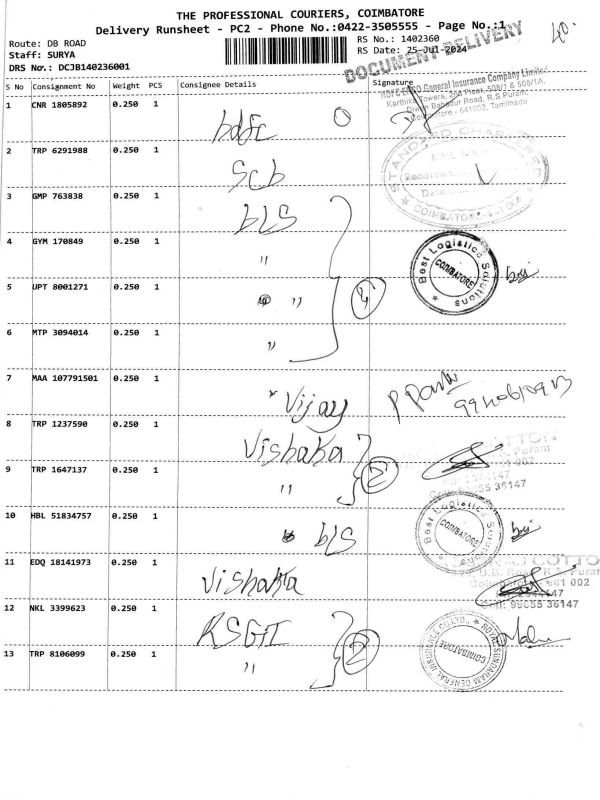 THE PROFESSIONAL COURIERS, COIMBATORE
Delivery Runsheet - PC2 - Phone No.:0422-3505555 - Page No.:1
40.
Route: DB ROAD
RS No.: 1402360
Staff: SURYA
RS Date: 25-Jul-2024
DOCUMENT DELIVERY
DRS No.: DCJB140236001
S No Consignment No Weight PCS Consignee Details Signature
General Insurance Company Limited
Karthik Towers,
Road, R.S.Puram,
641002, Tamilnadu
1 CNR 1805892 0.250 1 hdfc
2 TRP 6291988 0.250 1 Scb
STANDARD CHARTERED
COIMBATORE
3 GMP 763838 0.250 1 bLS
4 GYM 170849 0.250 1 "
Best Logistics Solutions
COIMBATORE
5 UPT 8001271 0.250 1 " 4
6 MTP 3094014 0.250 1 "
7 MAA 107791501 0.250 1 Vijay
8 TRP 1237590 0.250 1 Vishaka
9 TRP 1647137 0.250 1 " 2
36147
10 HBL 51834757 0.250 1 bLS
Best Logistics Solutions
COIMBATORE
11 EDQ 18141973 0.250 1 Vishaka
641 002
99655 36147
12 NKL 3399623 0.250 1 RSGI
ROYAL SUNDARAM GENERAL INSURANCE CO LTD.,
COIMBATORE
13 TRP 8106099 0.250 1 " 2